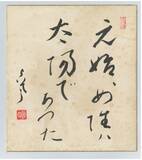 元始、女性は
太陽であつた
らいてう